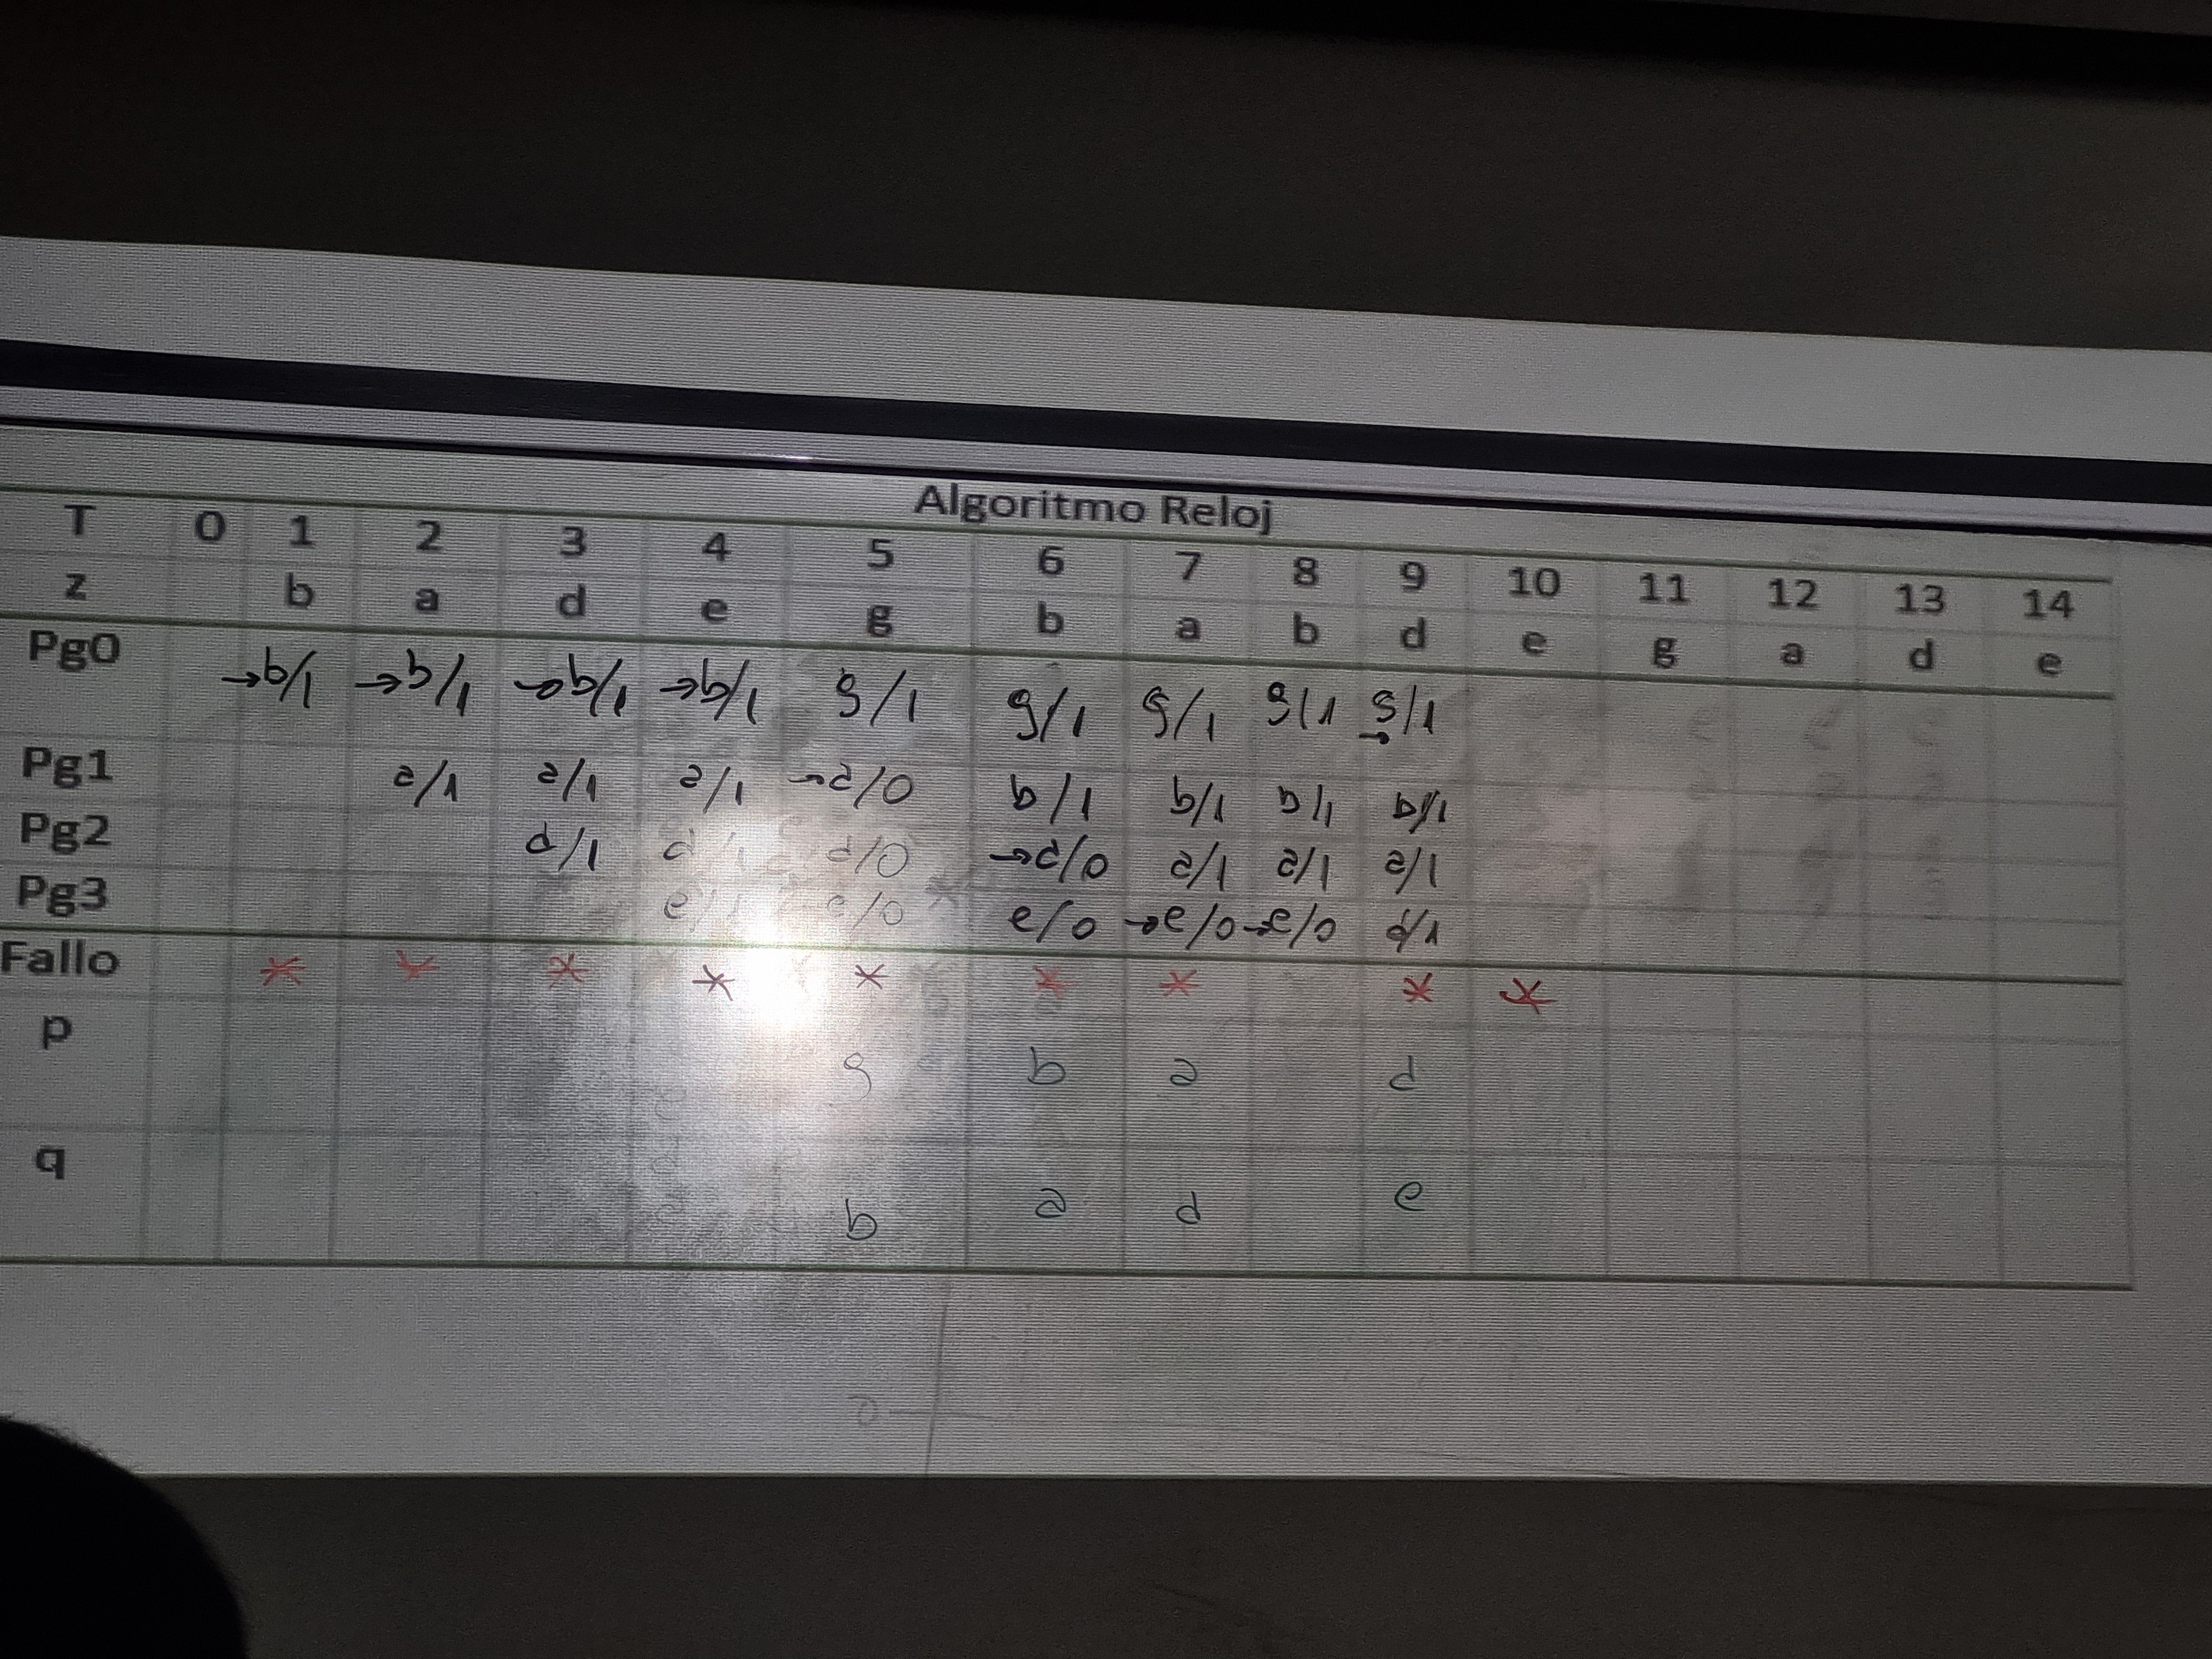 Algoritmo Reloj
T 0 1 2 3 4 5 6 7 8 9 10 11 12 13 14
z b a d e g b a b d e g a d e
Pg0 →b/1 →b/1 →b/1 →b/1 g/1 g/1 g/1 g/1 →g/1
Pg1 a/1 a/1 a/1 →a/0 b/1 b/1 b/1 b/1
Pg2 d/1 d/1 d/0 →d/0 a/1 a/1 a/1
Pg3 e/1 e/0 e/0 →e/0 →e/0 d/1
Fallo * * * * * * * * *
p g b a d
q b a d e